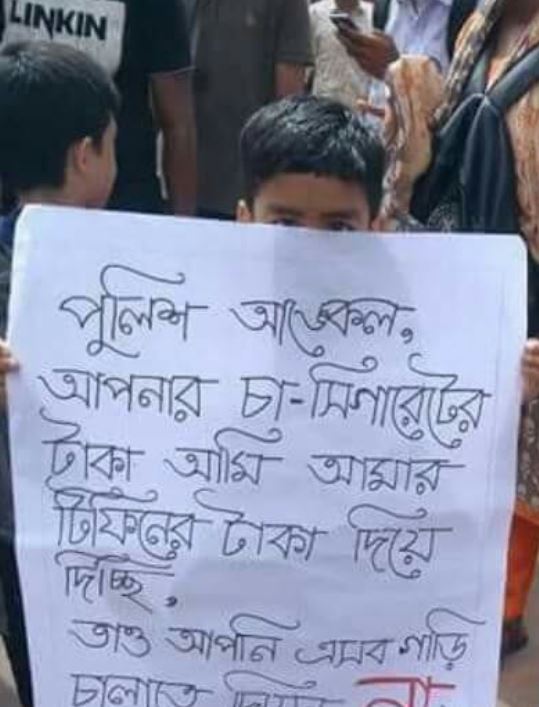 LINKIN
পুলিশ আঙ্কেল,
আপনার চা-সিগারেটের
টাকা আমি আমার
টিফিনের টাকা দিয়ে
দিচ্ছি,
তাও আপনি এসব গাড়ি
চালাতে দিয়েন না